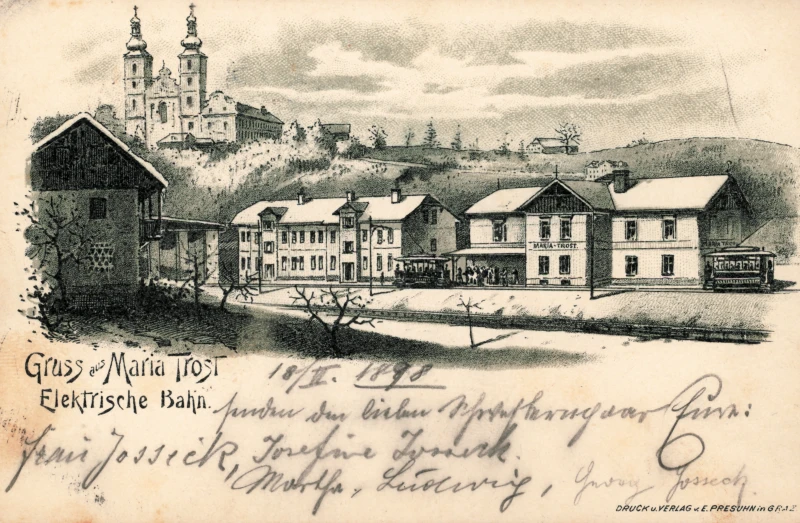 MARIA-TROST.
Gruss aus Maria Trost
Elektrische Bahn.
18/II. 1898
senden den lieben Schwesternpaar Eure:
Frau Jossick, Josefine Josseck.
Martha, Ludwig, Georg Josseck
DRUCK u. VERLAG v. E. PRESUHN in GRAZ